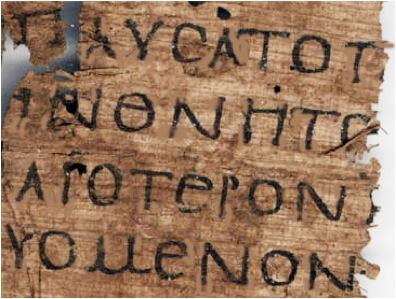 ΑΥϹΑΤΟΤ
ΝΘΝΗΤΟ
ΑΓΟΤΕΡΟΝ
ΥΟΜΕΝΟΝ